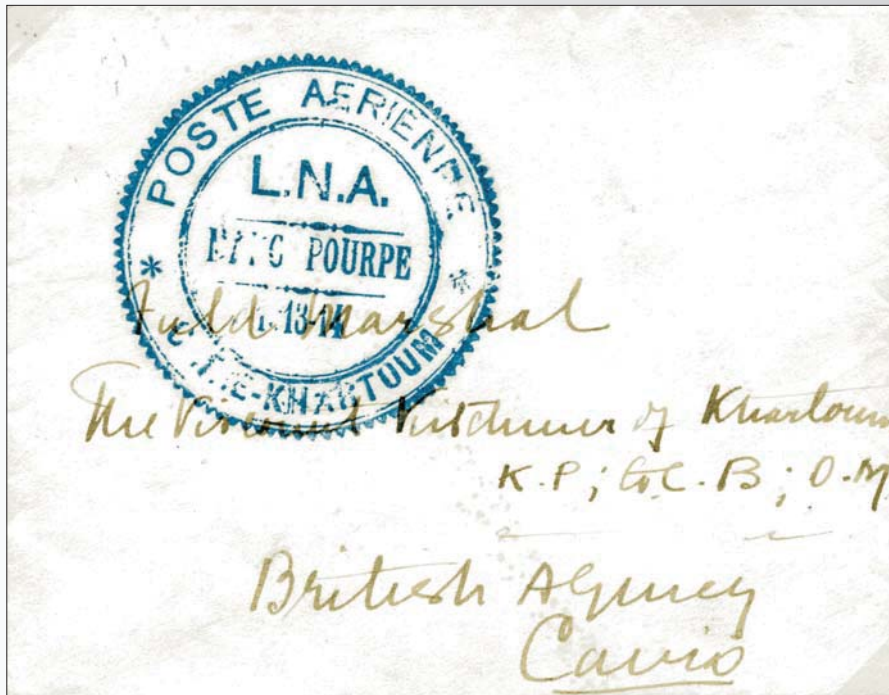 POSTE AERIENNE
L.N.A.
POURPE
13-14
KHARTOUM
Field Marshal
The Viscount Kitchener of Khartoum
K.P; G.C.B; O.M
British Agency
Cairo